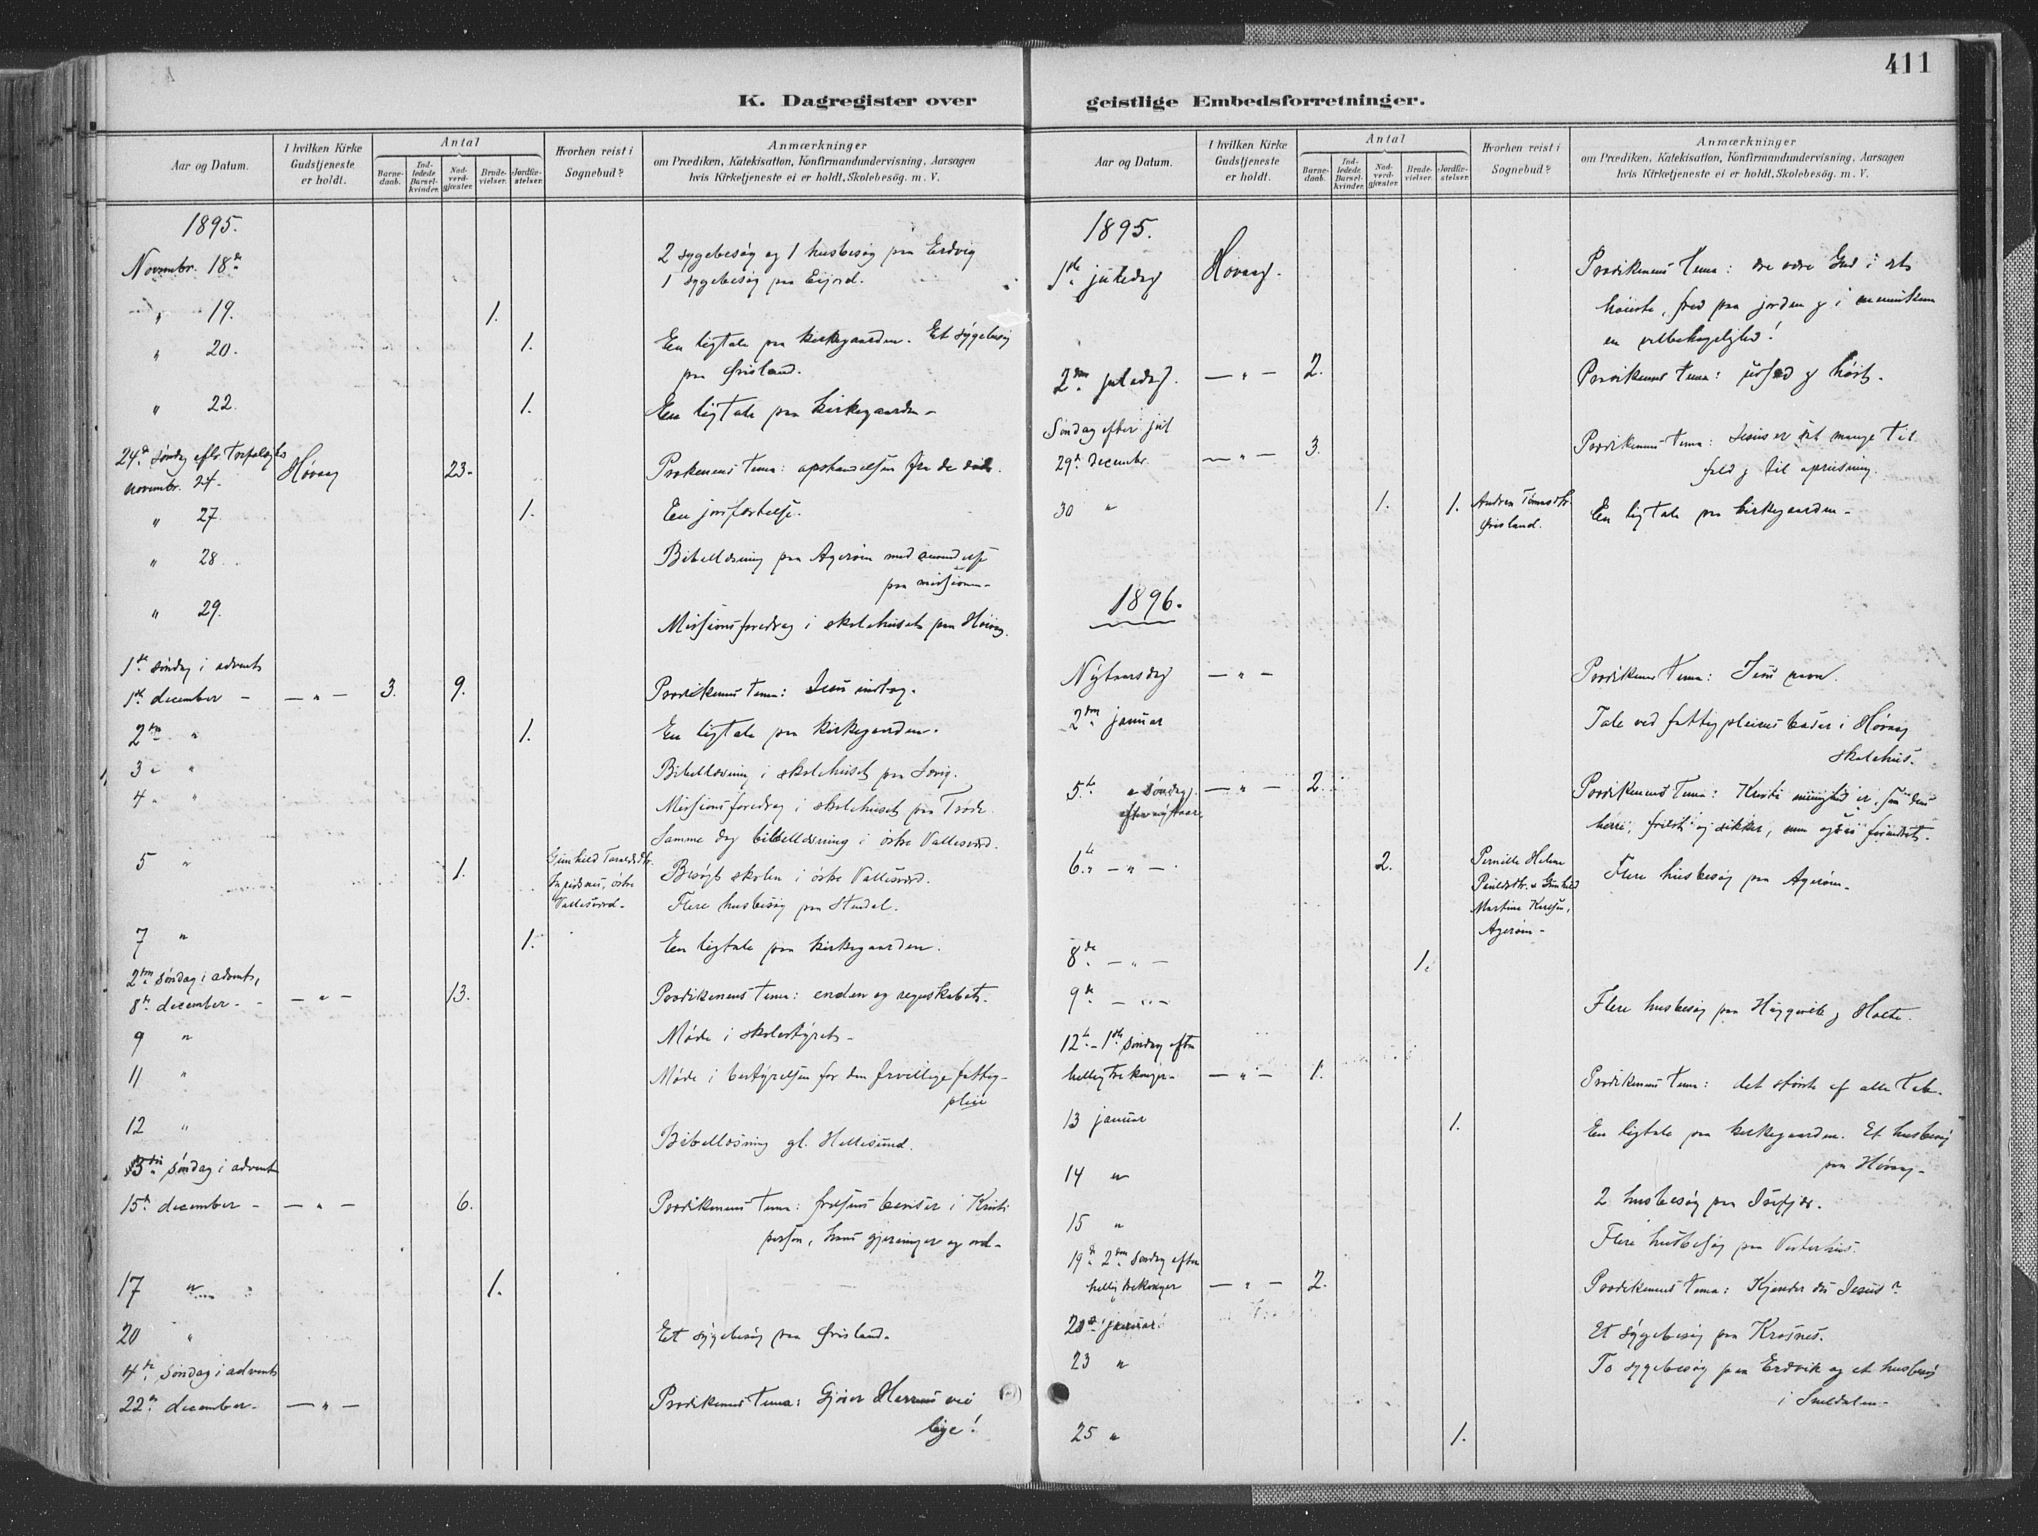 411
K. Dagregister over
geistlige Embedsforretninger.
Aar og Datum.
I hvilken Kirke Gudstjeneste er holdt.
Antal
Barnedaab.
Indledede Barselkvinder.
Nadverdgjæster.
Brudevielser.
Jordfæstelser.
Hvorhen reist i Sognebud?
Anmærkninger
om Prædiken, Katekisation, Konfirmandundervisning, Aarsagen
hvis Kirketjeneste ei er holdt, Skolebesøg. m. V.
1895.
Novembr. 18de 2 sygebesøg og 1 husbesøg paa Erdvig
1 sygebesøg paa Eijord.
" 19. 1.
" 20. 1. En ligtale paa kirkegaarden. Et sygebesøg
paa Øvisland.
" 22. 1. En ligtale paa kirkegaarden -
24de søndag
novembr. 24. Høvaag 23. tema: opstandelsen fra de døde.
" 27 1. En jordfæstelse.
" 28. Bibellæsning paa Agerøen med
paa missionen -
" 29. Missionsforedrag i skolehuset paa Høvaag.
1ste søndag i advent
1ste december - — " — 3. 9. Prædikenens tema: Jesu indtog.
2den " 1. En ligtale paa kirkegaarden.
3 " Bibellæsning i skolehuset paa
4 " Missionsforedrag i skolehuset paa
Samme dag bibellæsning i østre Vallesværd.
5 " 1. Gunhild
østre
Vallesværd - Besøgt skolen i østre Vallesværd.
Flere husbesøg paa Studal.
7 " 1. En ligtale paa kirkegaarden.
2den søndag i advent,
8de december - — " — 13. Prædikenens tema: enden og regnskabet.
9 " Møde i skolestyret -
11 " Møde i bestyrelsen for den frivillige fattig-
pleie
12 " Bibellæsning gl. Hellesund.
3die søndag i advent
15de december - — " — 6. Prædikenens tema: frelsens beviser i Kristi
person, hans gjerninger og ord -
17 " 1.
20 " Et sygebesøg paa Øvisland -
4de søndag i advent
22de december - — " — Prædikenens tema: Gjører Herrens vei
lige!
Aar og Datum.
I hvilken Kirke Gudstjeneste er holdt.
Antal
Barnedaab.
Indledede Barselkvinder.
Nadverdgjæster.
Brudevielser.
Jordfæstelser.
Hvorhen reist i Sognebud?
Anmærkninger
om Prædiken, Katekisation, Konfirmandundervisning, Aarsagen
hvis Kirketjeneste ei er holdt, Skolebesøg. m. V.
1895.
1ste juledag Høvaag. Prædikenens tema: ære være Gud i det
høieste, fred paa jorden og i menneskene
en velbehagelighed!
2den juledag. — " — 2. Prædikenens tema:
Søndag efter jul
29de decembr. — " — 3. Prædikenens tema: Jesus er sat mange til
fald og til opreisning.
30 " 1. 1. Andrea
Øvisland. En ligtale paa kirkegaarden -
1896.
Nytaarsdag — " — Prædikenens tema: Jesu navn.
2den januar Tale ved fattigpleiens basar i Høvaag
skolehus.
5te søndag
efter nytaar — " — 2. Prædikenens tema: Kristi menighed er, som dens
herre, frelst og sikker, men ogsaa
6te — " — 2. Pernille Helene
Gunhild
Martine
Agerøen - Flere husbesøg paa Agerøen -
8de — " — 1.
9de — " — Flere husbesøg paa Hæggevik og Holte.
12te - 1ste søndag efter
hellig trekonger - — " — 1. Prædikenens tema: det største af alle tab -
13 januar 1. En ligtale paa kirkegaarden. Et husbesøg
paa Høvaag -
14 " 2 husbesøg paa Isefjær.
15 " Flere husbesøg paa Vesterhus.
19de 2den søndag efter
hellig trekonger — " — 2. Prædikenens tema: Kjender du Jesus?
20de januar Et sygebesøg paa Krosnes.
23 " To sygebesøg paa Erdvik og et husbesøg
i
25 " 1.